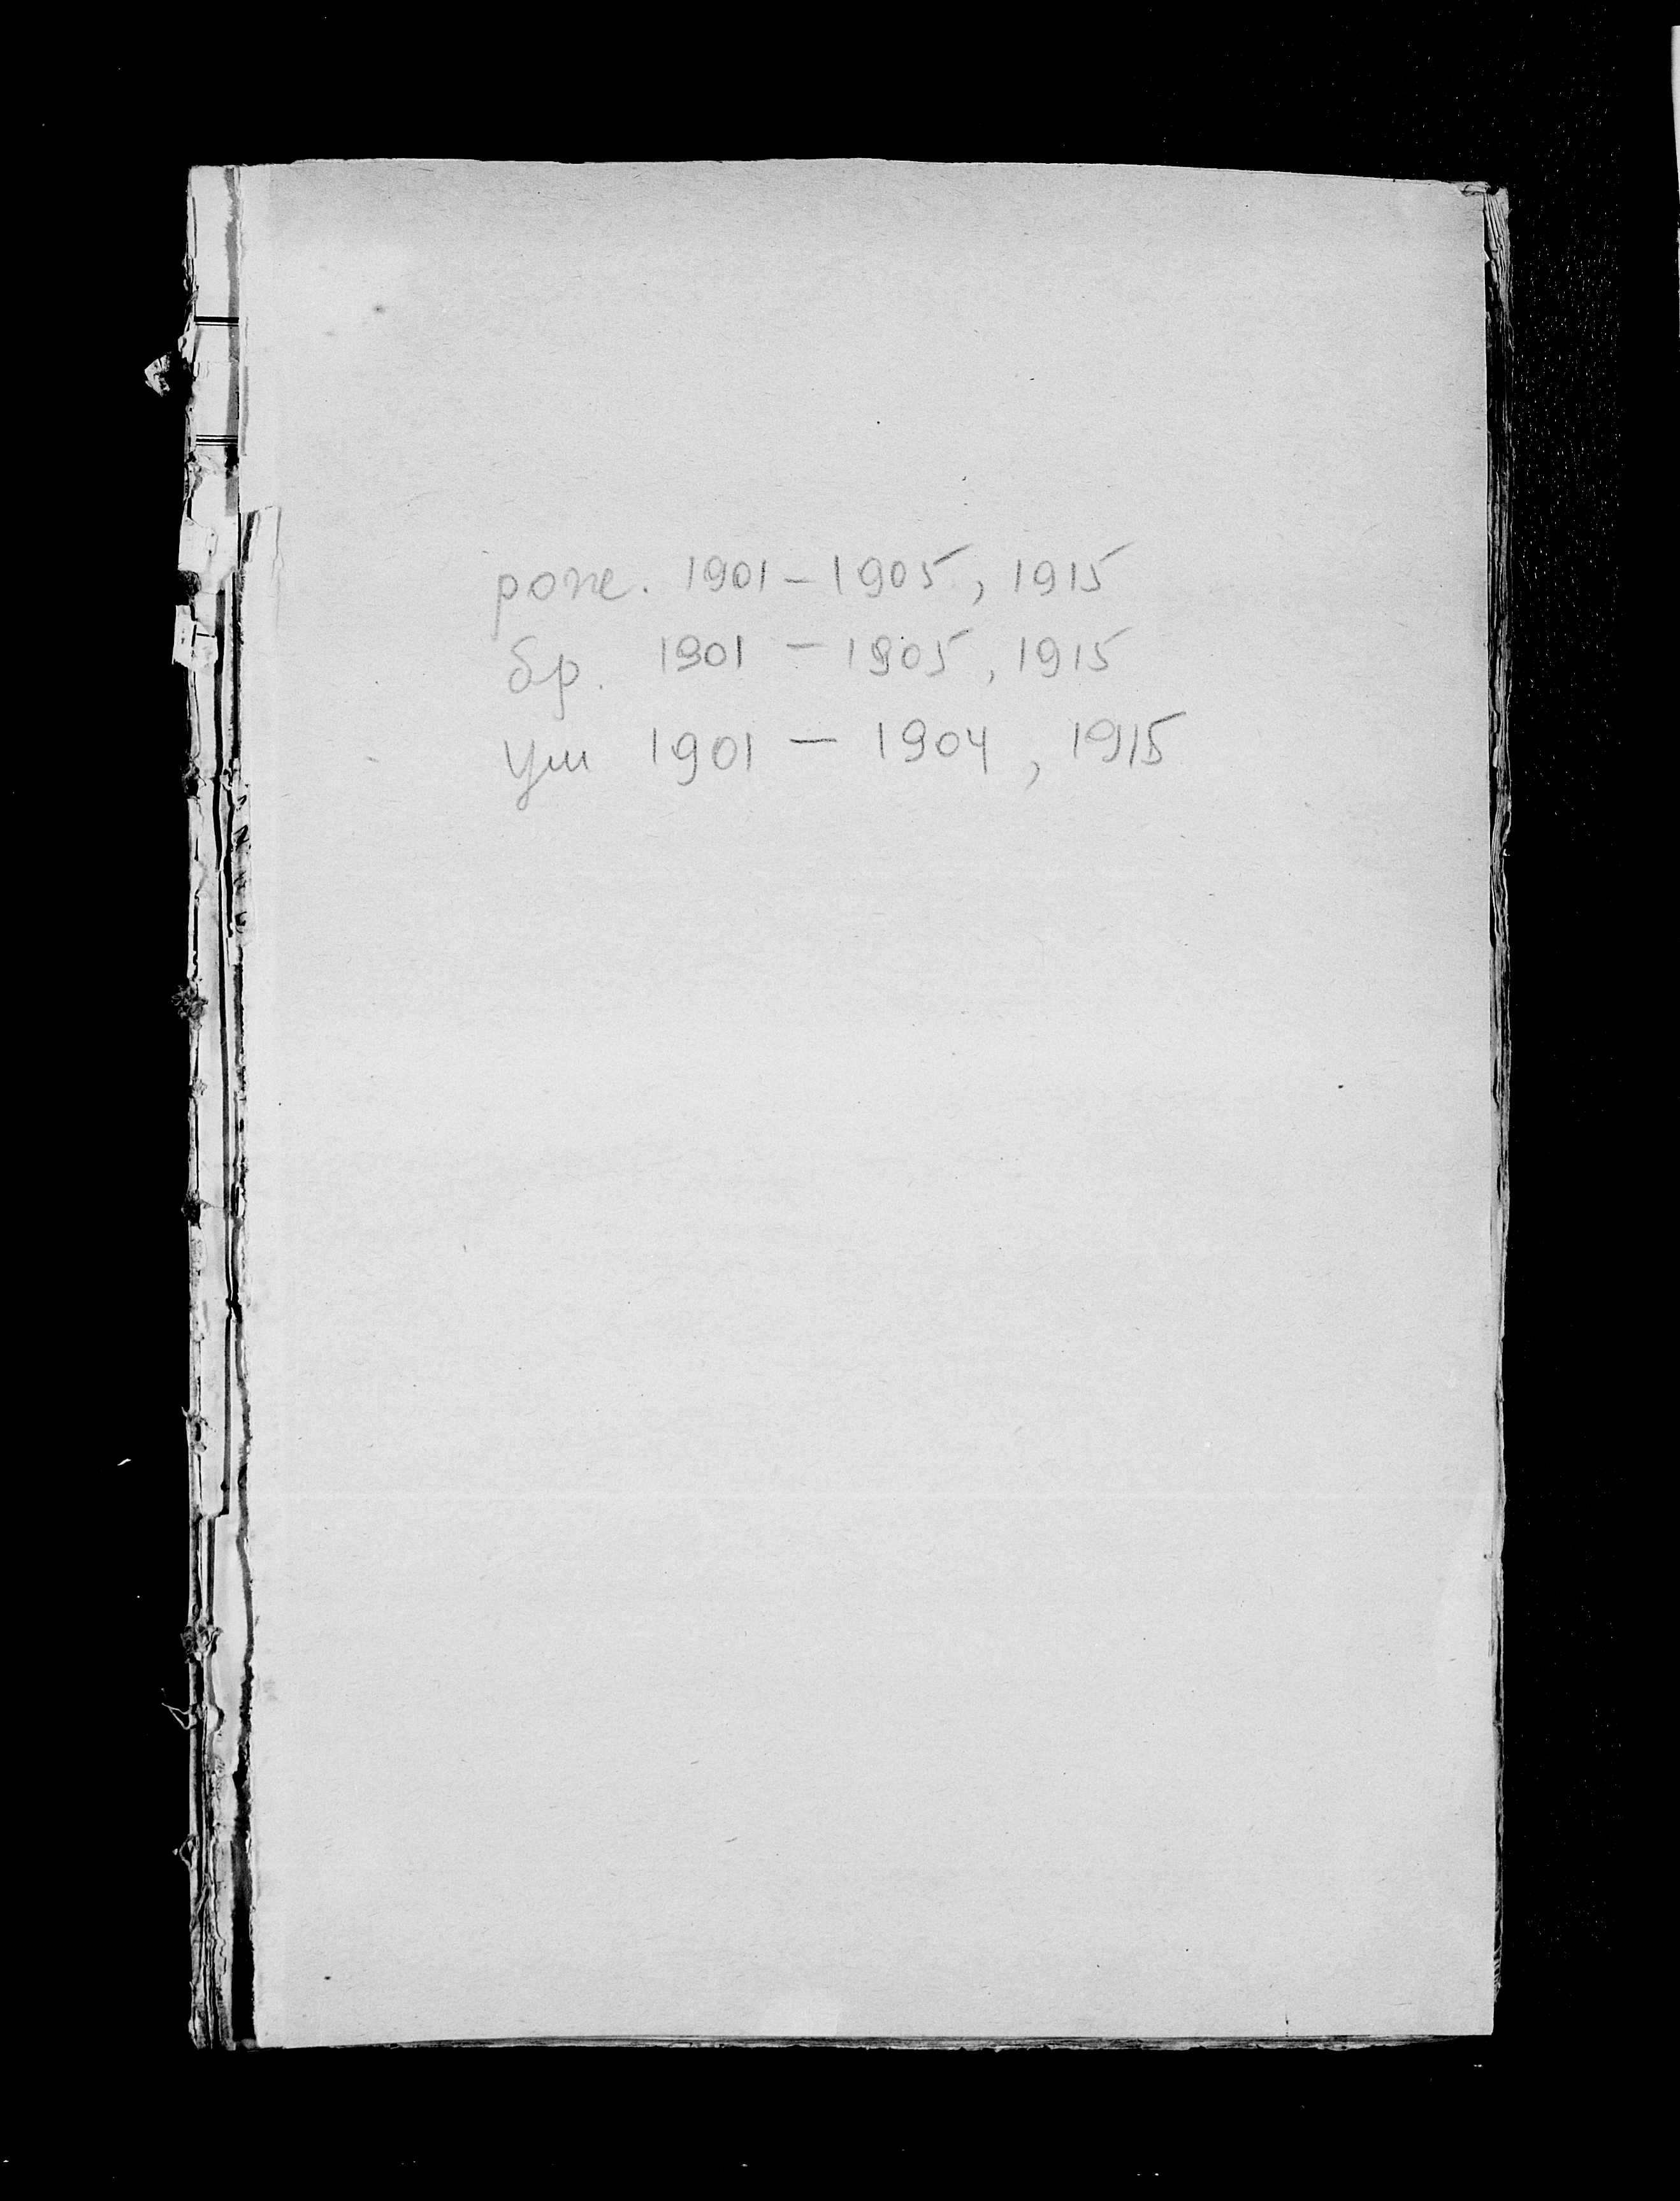 рож. 1901 – 1905, 1915
бр. 1901 – 1905, 1915
Ум 1901 – 1904, 1915